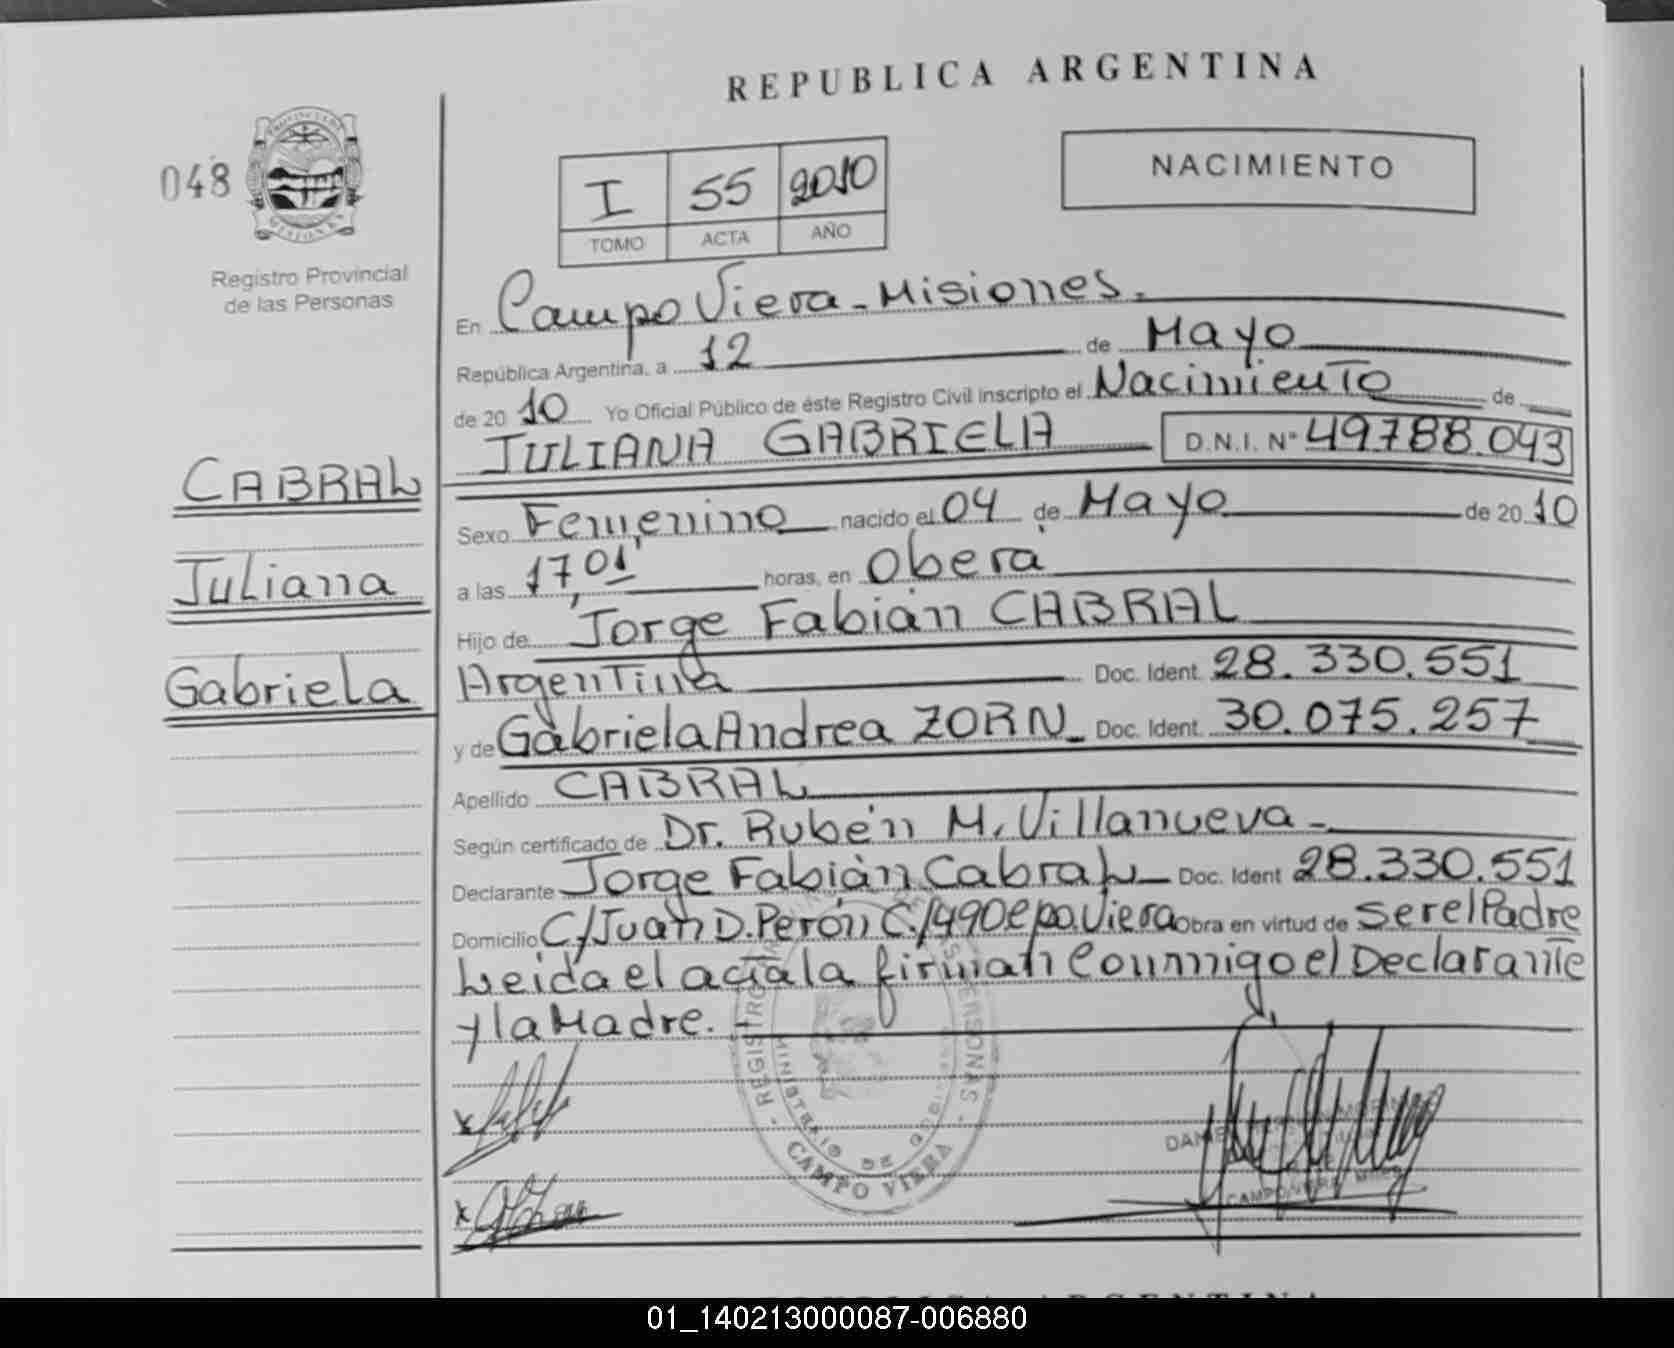 REPUBLICA ARGENTINA
048
PROVINCIA DE MISIONES
Registro Provincial
de las Personas
I 55 2010
TOMO ACTA AÑO
NACIMIENTO
CABRAL
Juliana
Gabriela
En Campo Viera - Misiones.
República Argentina, a 12 de Mayo
de 20 10 Yo Oficial Público de éste Registro Civil inscripto el Nacimiento de
JULIANA GABRIELA D.N.I. Nº 49.788.043
Sexo Femenino nacido el 04 de Mayo de 20 10
a las 17,01' horas, en Oberá
Hijo de Jorge Fabián CABRAL
Argentina Doc. Ident. 28.330.551
y de Gabriela Andrea ZORN Doc. Ident. 30.075.257
Apellido CABRAL
Según certificado de Dr. Rubén M. Villanueva -
Declarante Jorge Fabián Cabral Doc. Ident 28.330.551
Domicilio C/Juan D. Perón C./490 Cpo. Viera Obra en virtud de ser el Padre
Leida el acta la firman Conmigo el Declarante
y la Madre. -
REGISTRO PERSONAS
MINISTERIO DE
CAMPO VIERA
CAMPO VIERA
01_140213000087-006880